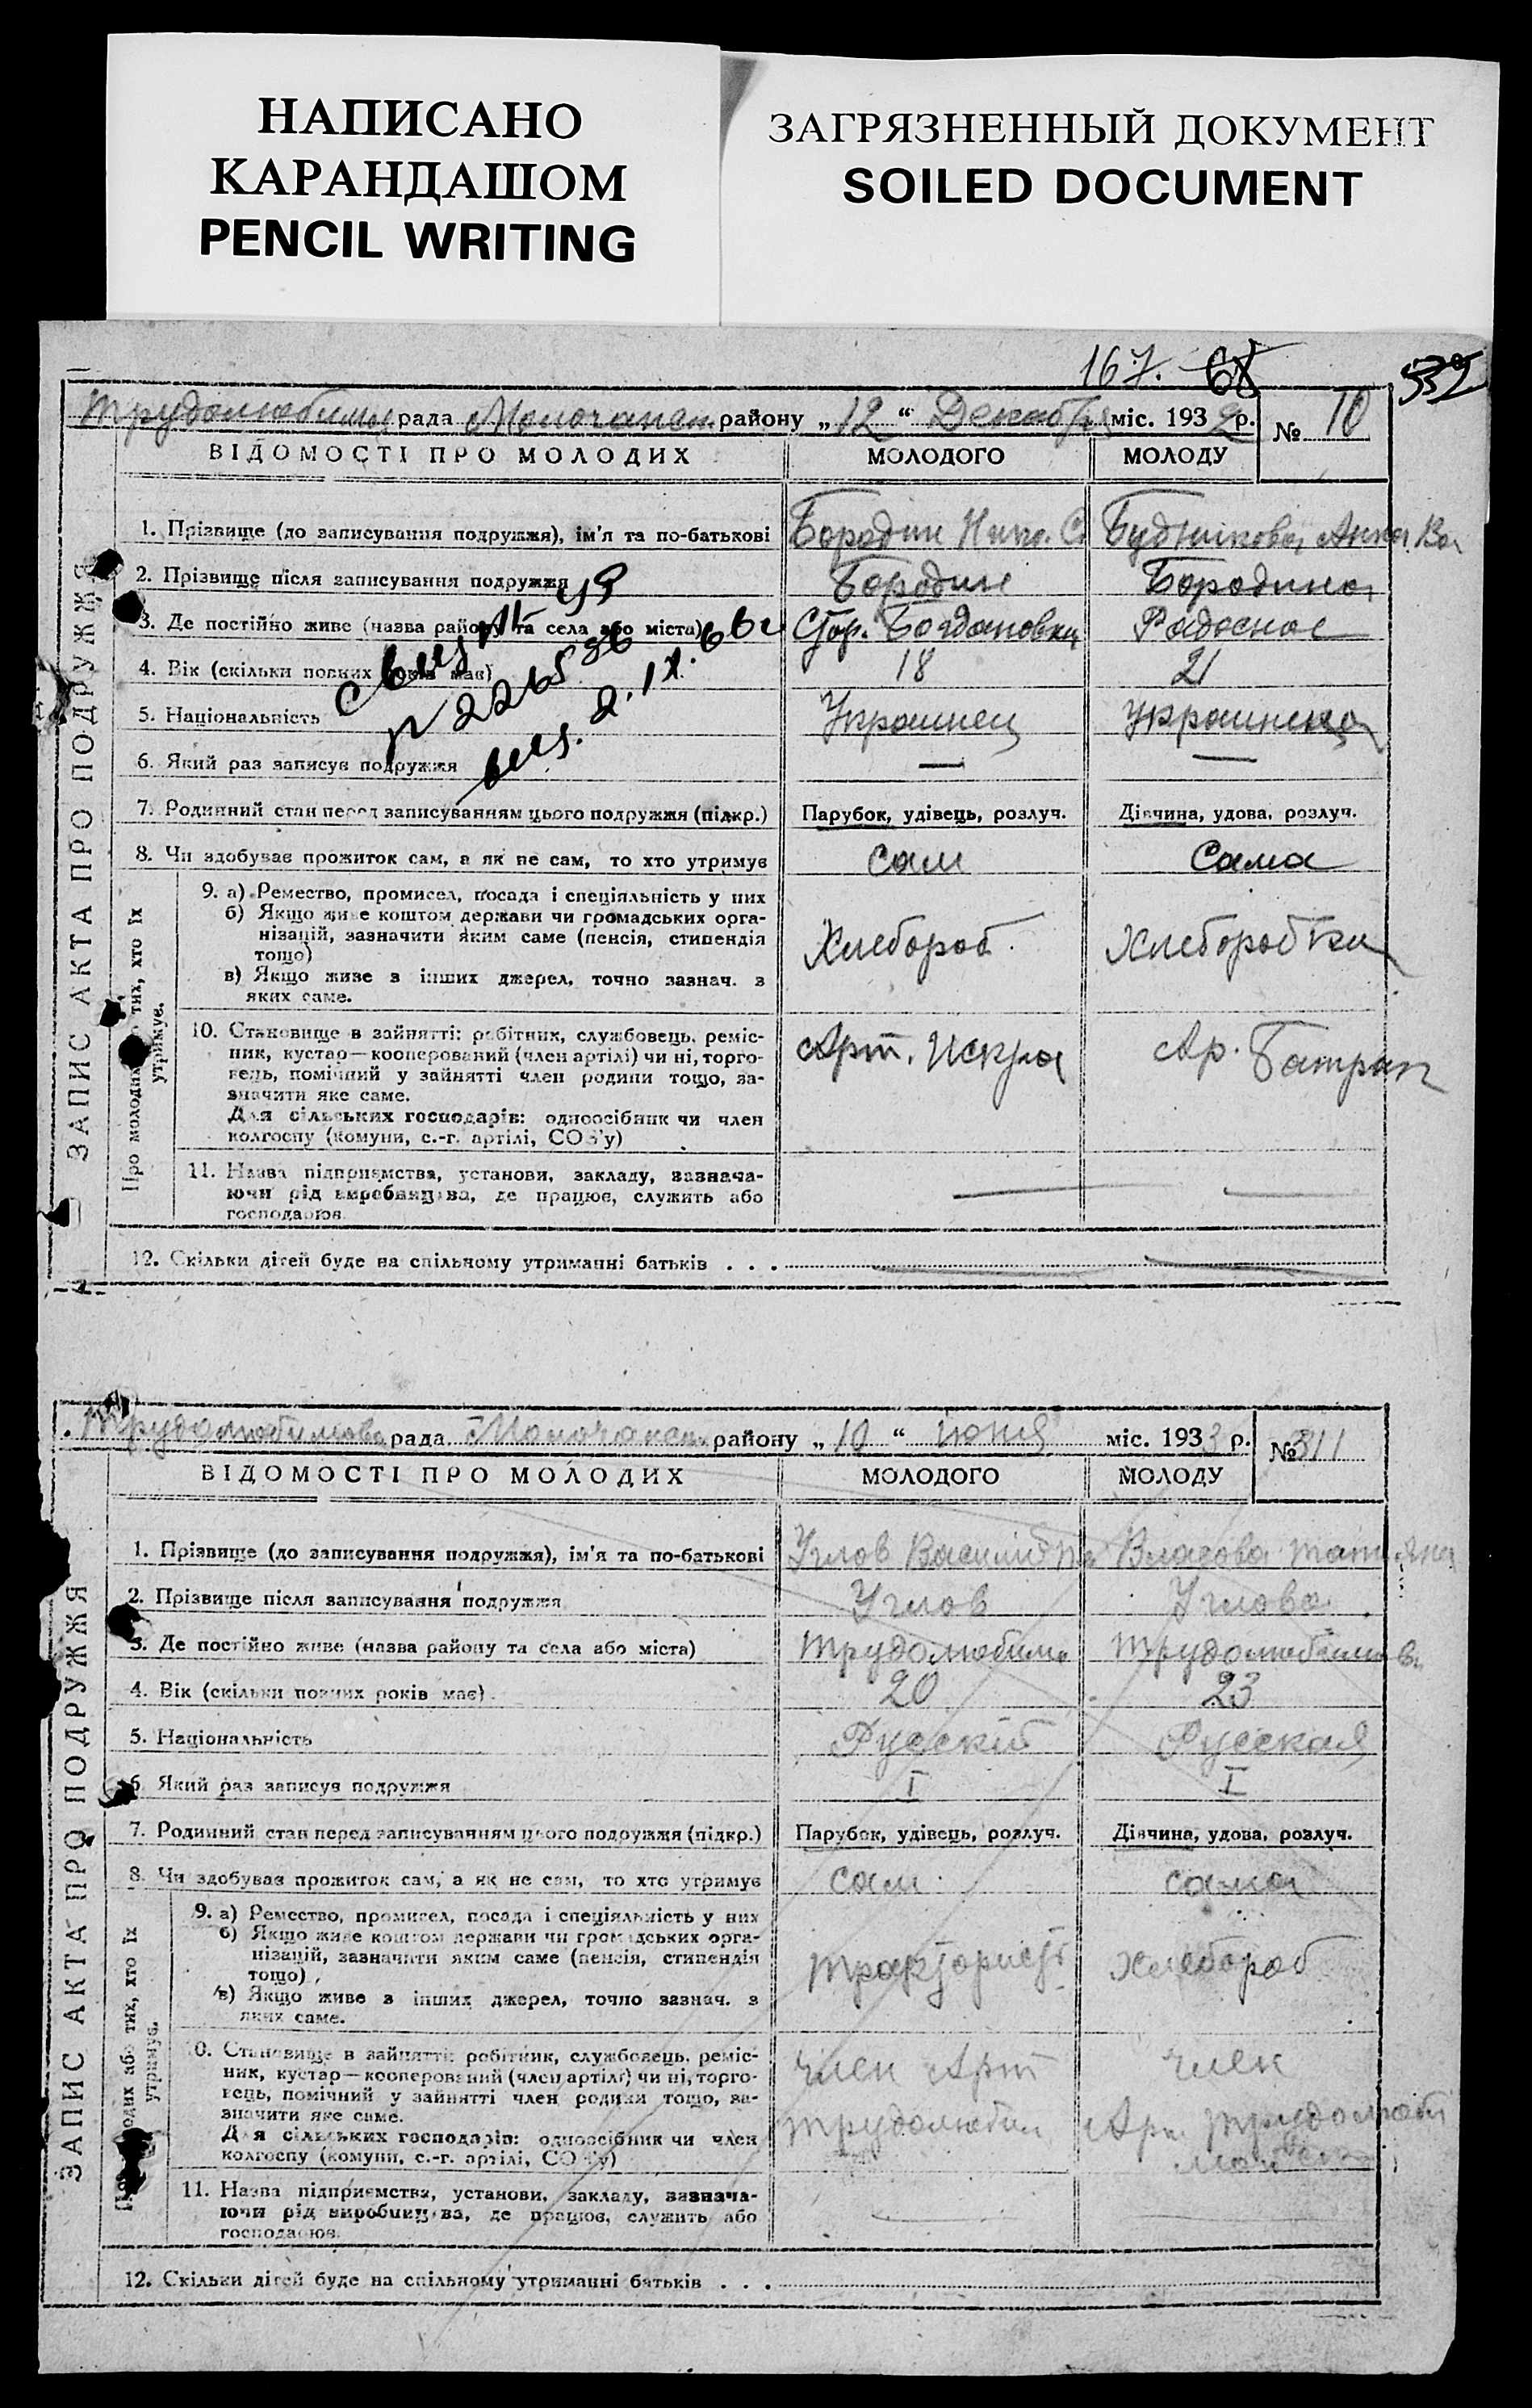 НАПИСАНО
КАРАНДАШОМ
PENCIL WRITING
ЗАГРЯЗНЕННЫЙ ДОКУМЕНТ
SOILED DOCUMENT
167. 68 532
рада района „12“ Декабря міс. 1932 р. № 10
ВІДОМОСТІ ПРО МОЛОДИХ МОЛОДОГО МОЛОДУ
ЗАПИС АКТА ПРО ПОДРУЖЖЯ
1. Прізвище (до записування подружжя), ім'я та по-батькові Бородин Нико. С Будникова Анна Ва
2. Прізвище після записування подружжя Бородин Бородина
3. Де постійно живе (назва району та села або міста) Стар. Богдановка Радосное
4. Вік (скільки повних років має) 18 21
5. Національність Украинец Украинка
6. Який раз записує подружжя — —
7. Родинний стан перед записуванням цього подружжя (підкр.) Парубок, удівець, розлуч. Дівчина, удова, розлуч.
8. Чи здобуває прожиток сам, а як не сам, то хто утримує сам Сама
Про молодих або тих, хто їх утримує.
9. а) Ремество, промисел, посада і спеціяльність у них
б) Якщо живе коштом держави чи громадських орга-
нізацій, зазначити яким саме (пенсія, стипендія
тощо) Хлебороб. Хлеборобка
в) Якщо живе з інших джерел, точно зазнач. з
яких саме.
10. Становище в зайнятті: робітник, службовець, реміс-
ник, кустар—кооперований (член артілі) чи ні, торго- Арт. Искра Ар. Батрак
вець, помічний у зайнятті член родини тощо, за-
значити яке саме.
Для сільських господарів: одноосібник чи член
колгоспу (комуни, с.-г. артілі, СОЗ'у)
11. Назва підприємства, установи, закладу, зазнача-
ючи рід виробництва, де працює, служить або
господарює.
12. Скільки дітей буде на спільному утриманні батьків . . .
рада району „10“ июня міс. 1933 р. № 311
ВІДОМОСТІ ПРО МОЛОДИХ МОЛОДОГО МОЛОДУ
ЗАПИС АКТА ПРО ПОДРУЖЖЯ
1. Прізвище (до записування подружжя), ім'я та по-батькові Углов Василий Власова Татьяна
2. Прізвище після записування подружжя Углов Углова
3. Де постійно живе (назва району та села або міста) Трудолюбимо Трудолюбимов
4. Вік (скільки повних років має) 20 23
5. Національність Русский Русская
6. Який раз записує подружжя I I
7. Родинний стан перед записуванням цього подружжя (підкр.) Парубок, удівець, розлуч. Дівчина, удова, розлуч.
8. Чи здобуває прожиток сам, а як не сам, то хто утримує сам сама
Про молодих або тих, хто їх утримує.
9. а) Ремество, промисел, посада і спеціяльність у них
б) Якщо живе коштом держави чи громадських орга-
нізацій, зазначити яким саме (пенсія, стипендія
тощо) Тракторист Хлебороб
в) Якщо живе з інших джерел, точно зазнач. з
яких саме.
10. Становище в зайнятті: робітник, службовець, реміс-
ник, кустар—кооперований (член артілі) чи ні, торго- член Арт член
вець, помічний у зайнятті член родини тощо, за-
значити яке саме.
Для сільських господарів: одноосібник чи член Трудолюбим
колгоспу (комуни, с.-г. артілі, СОЗ'у)
11. Назва підприємства, установи, закладу, зазнача-
ючи рід виробництва, де працює, служить або
господарює.
12. Скільки дітей буде на спільному утриманні батьків . . .